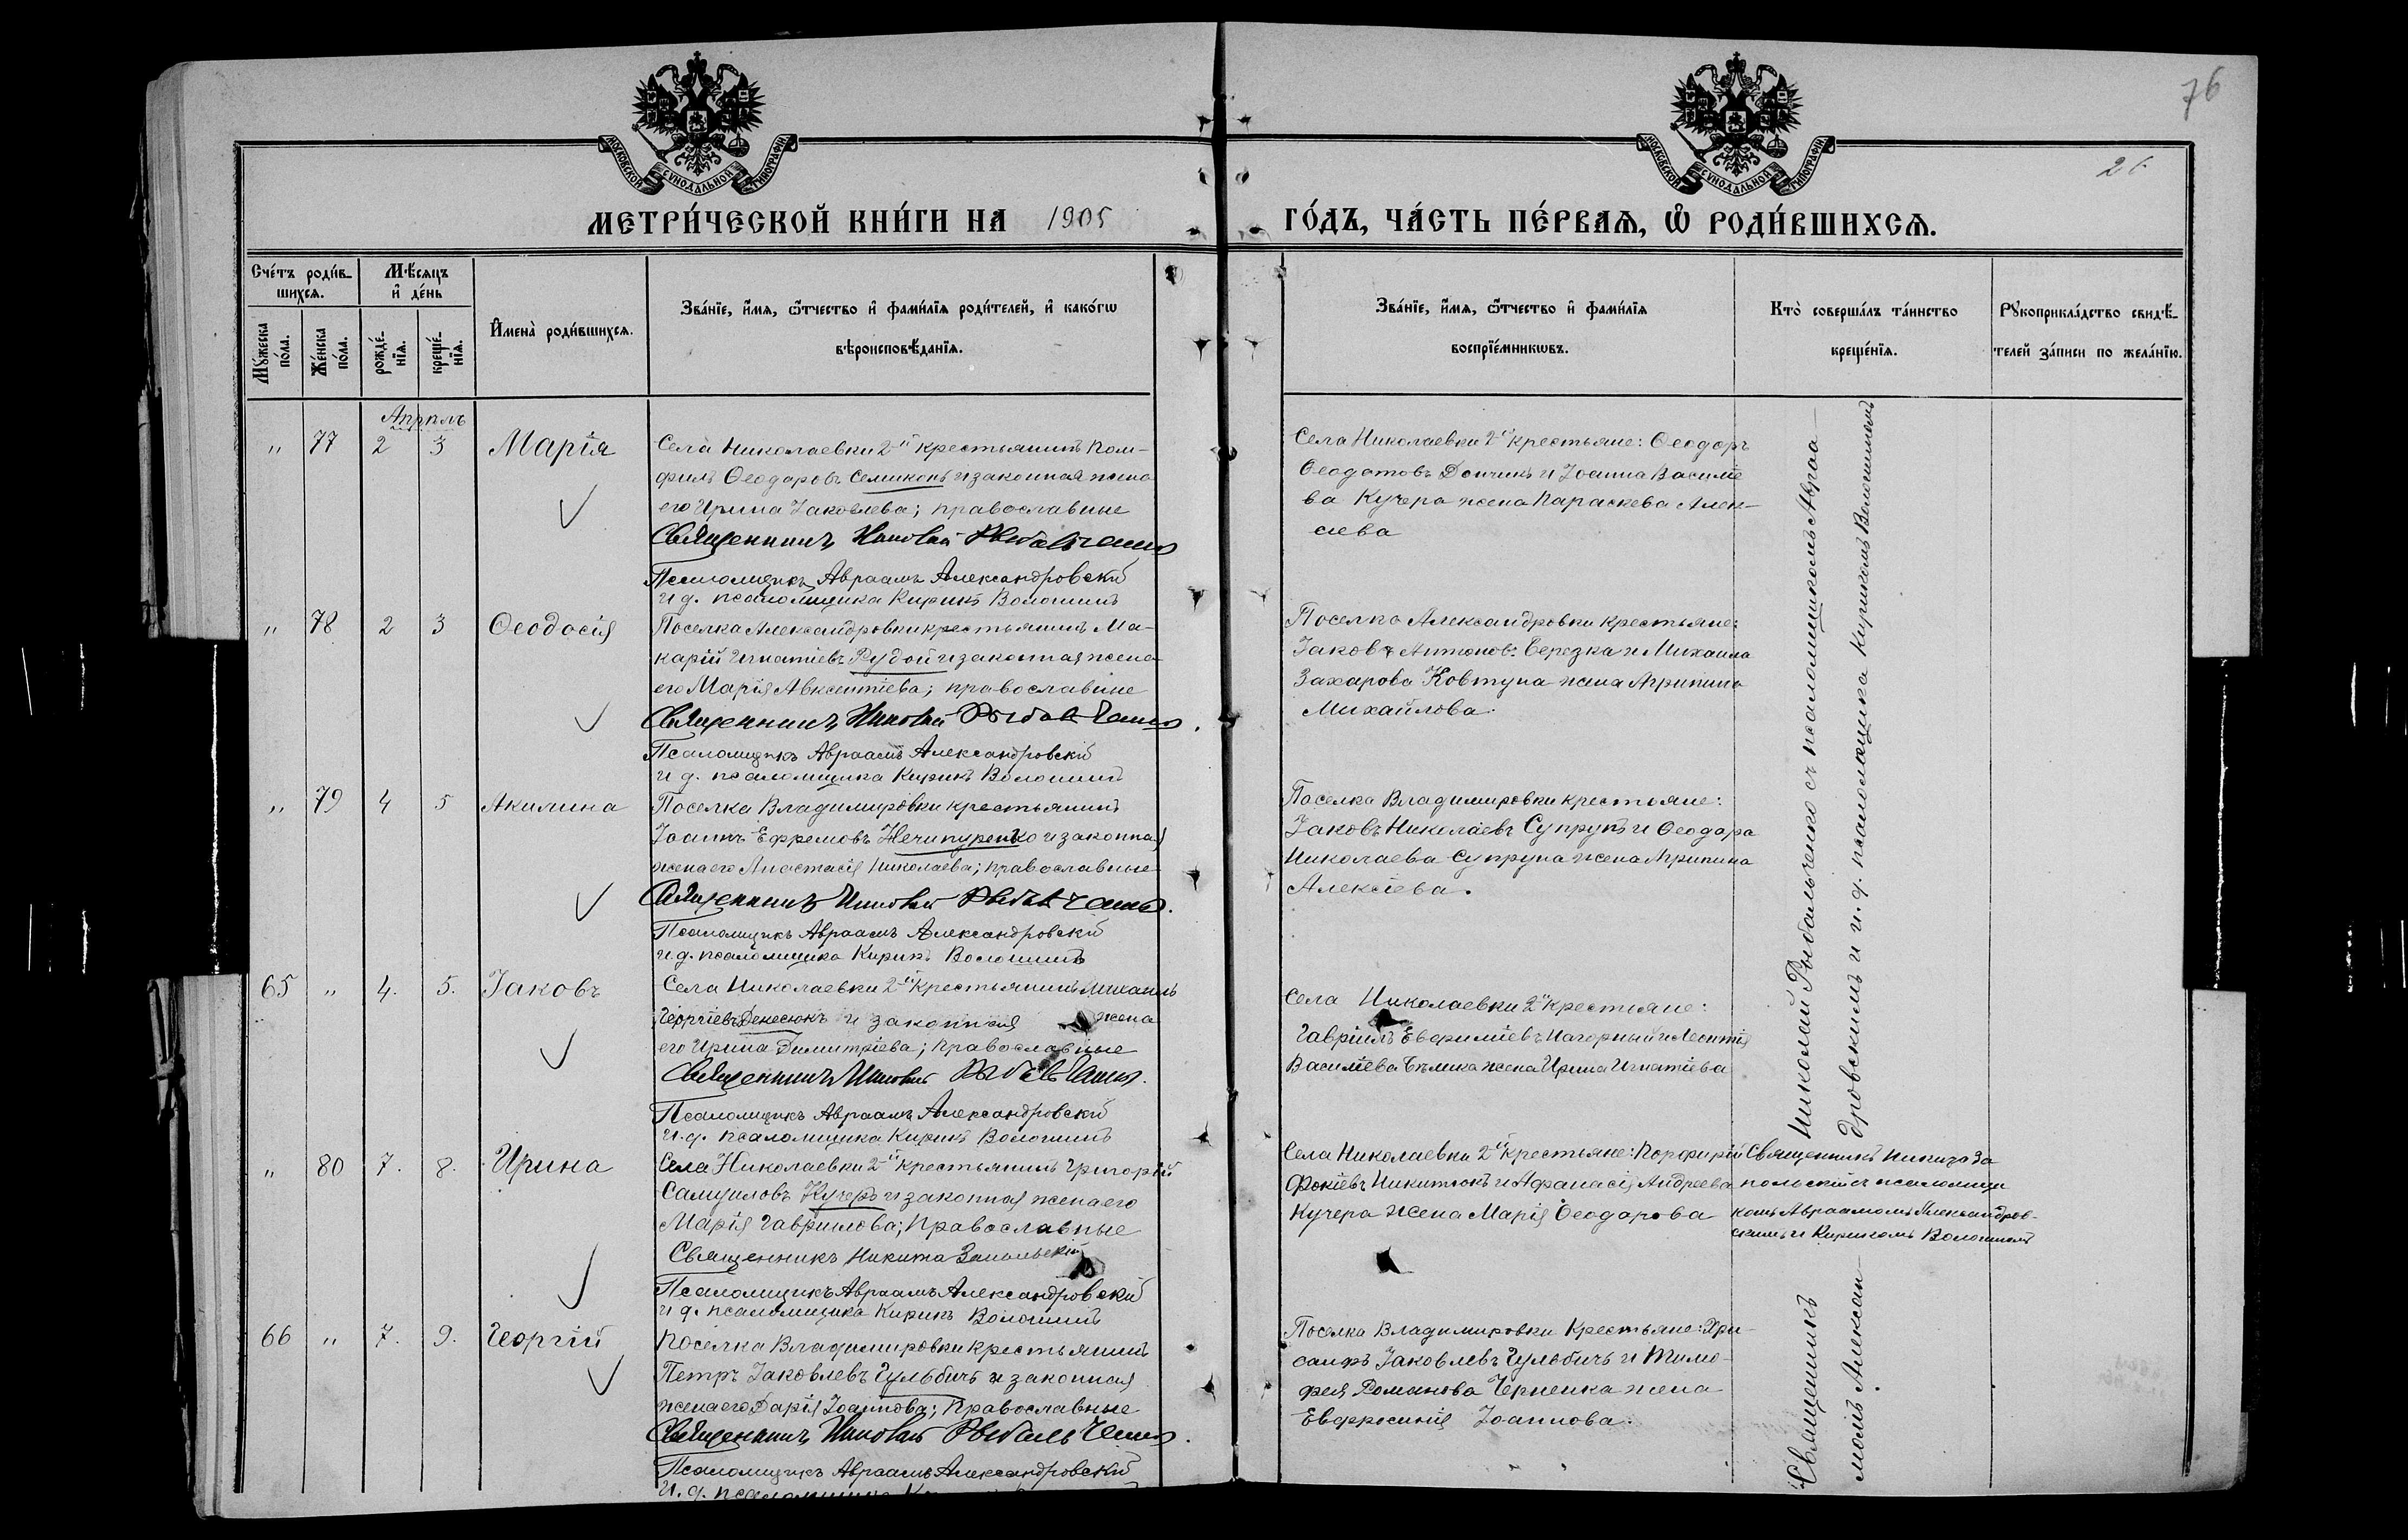 76
26
МОСКОВСКОЙ СѴНОДАЛЬНОЙ ТИПОГРАФІИ
МОСКОВСКОЙ СѴНОДАЛЬНОЙ ТИПОГРАФІИ
МЕТРИ́ЧЕСКОЙ КНИ́ГИ НА 1905 ГО́ДЪ, ЧА́СТЬ ПЕ́РВАѦ, Ѽ РОДИ́ВШИХСѦ.
Сче́тъ роди́в-
шихсѧ.
Мѣ́сяцъ
и҆ де́нь
Мꙋ́жеска по́ла.
Же́нска по́ла.
рожде́-
нїѧ.
креще́-
нїѧ.
И҆мена̀ роди́вшихсѧ.
Зва́нїе, и҆́мѧ, ѻ҆́тчество и҆ фами́лїѧ роди́телей, и҆ како́гѡ
вѣроисповѣ́данїѧ.
Зва́нїе, и҆́мѧ, ѻ҆́тчество и҆ фами́лїѧ
воспрїе́мникѡвъ.
Кто̀ соверша́лъ та́инство
креще́нїѧ.
Рꙋкоприкла́дство свидѣ́-
телей за́писи по жела́нїю.
Апрѣль
" 77 2 3 Марія
Села Николаевки 2й крестьянинъ Пам-
филъ Ѳеодоровъ Семиконь и законная жена
его Ирина Іаковлева; православные
Священникъ Николай Рыбальченко
Псаломщикъ Авраамъ Александровскій
и д. псаломщика Кирикъ Волошинъ
Села Николаевки 2й крестьяне: Ѳеодоръ
Ѳеодотовъ Дончикъ и Іоанна Василіе
ва Кучера жена Параскева Алек-
сіева
" 78 2 3 Ѳеодосія
Поселка Александровки крестьянинъ Ма-
карій Игнатіевъ Рудой и законная жена
его Марія Авксентіева; православные
Священникъ Николай Рыбальченко.
Псаломщикъ Авраамъ Александровскій
и д. псаломщика Кирикъ Волошинъ
Поселка Александровки крестьяне:
Іаковъ Антоновъ Березка и Михаила
Захарова Ковтуна жена Агрипина
Михайлова.
" 79 4 5 Акилина
Поселка Владимировки крестьянинъ
Іоаннъ Ефремовъ Нечипуренко и законная
жена его Анастасія Николаева; православные
Священникъ Николай Рыбальченко.
Псаломщикъ Авраамъ Александровскій
и д. псаломщика Кирикъ Волошинъ
Поселка Владимировки крестьяне:
Іаковъ Николаевъ Супрунъ и Ѳеодора
Николаева Супруна жена Агрипина
Алексіева.
65 " 4. 5. Іаковъ
Села Николаевки 2й крестьянинъ Михаилъ
Георгіевъ Денесюкъ и законная жена
его Ирина Димитріева; православные
Священникъ Николай Рыбальченко.
Псаломщикъ Авраамъ Александровскій
и. д. псаломщика Кирикъ Волошинъ
Села Николаевки 2й крестьяне:
Гавріилъ Евфиміевъ Нагорный и Леонтія
Василіева Бѣлика жена Ирина Игнатіева
Николай Рыбальченко съ псаломщикомъ Авраа-
дровскимъ и и. д. псаломщика Кирикомъ Волошинымъ
" 80 7. 8. Ирина
Села Николаевки 2й крестьянинъ Григорій
Самуиловъ Кучеръ и законная жена его
Марія Гавриилова; Православные
Священникъ Никита Запольскій
Псаломщикъ Авраамъ Александровскій
и д. псаломщика Кирикъ Волошинъ
Села Николаевки 2й крестьяне: Порфирій
Фокіевъ Никитюкъ и Аѳанасія Андреева
Кучера жена Марія Ѳеодорова
Священникъ Никита За
польскій съ псаломщи
комъ Авраамомъ Александров-
скимъ и Кирикомъ Волошинымъ
66 " 7. 9. Георгій
Поселка Владимировки крестьянинъ
Петръ Іаковлевъ Гульбичъ и законная
жена его Дарія Іоаннова; Православные
Священникъ Николай Рыбальченко.
Псаломщикъ Авраамъ Александровскій
и. д. псаломщика
Поселка Владимировки Крестьяне: Хри-
санфъ Іаковлевъ Гульбичъ и Тимо-
фея Романова Черненка жена
Евфросинія Іоаннова.
Священникъ
момъ Алексан-